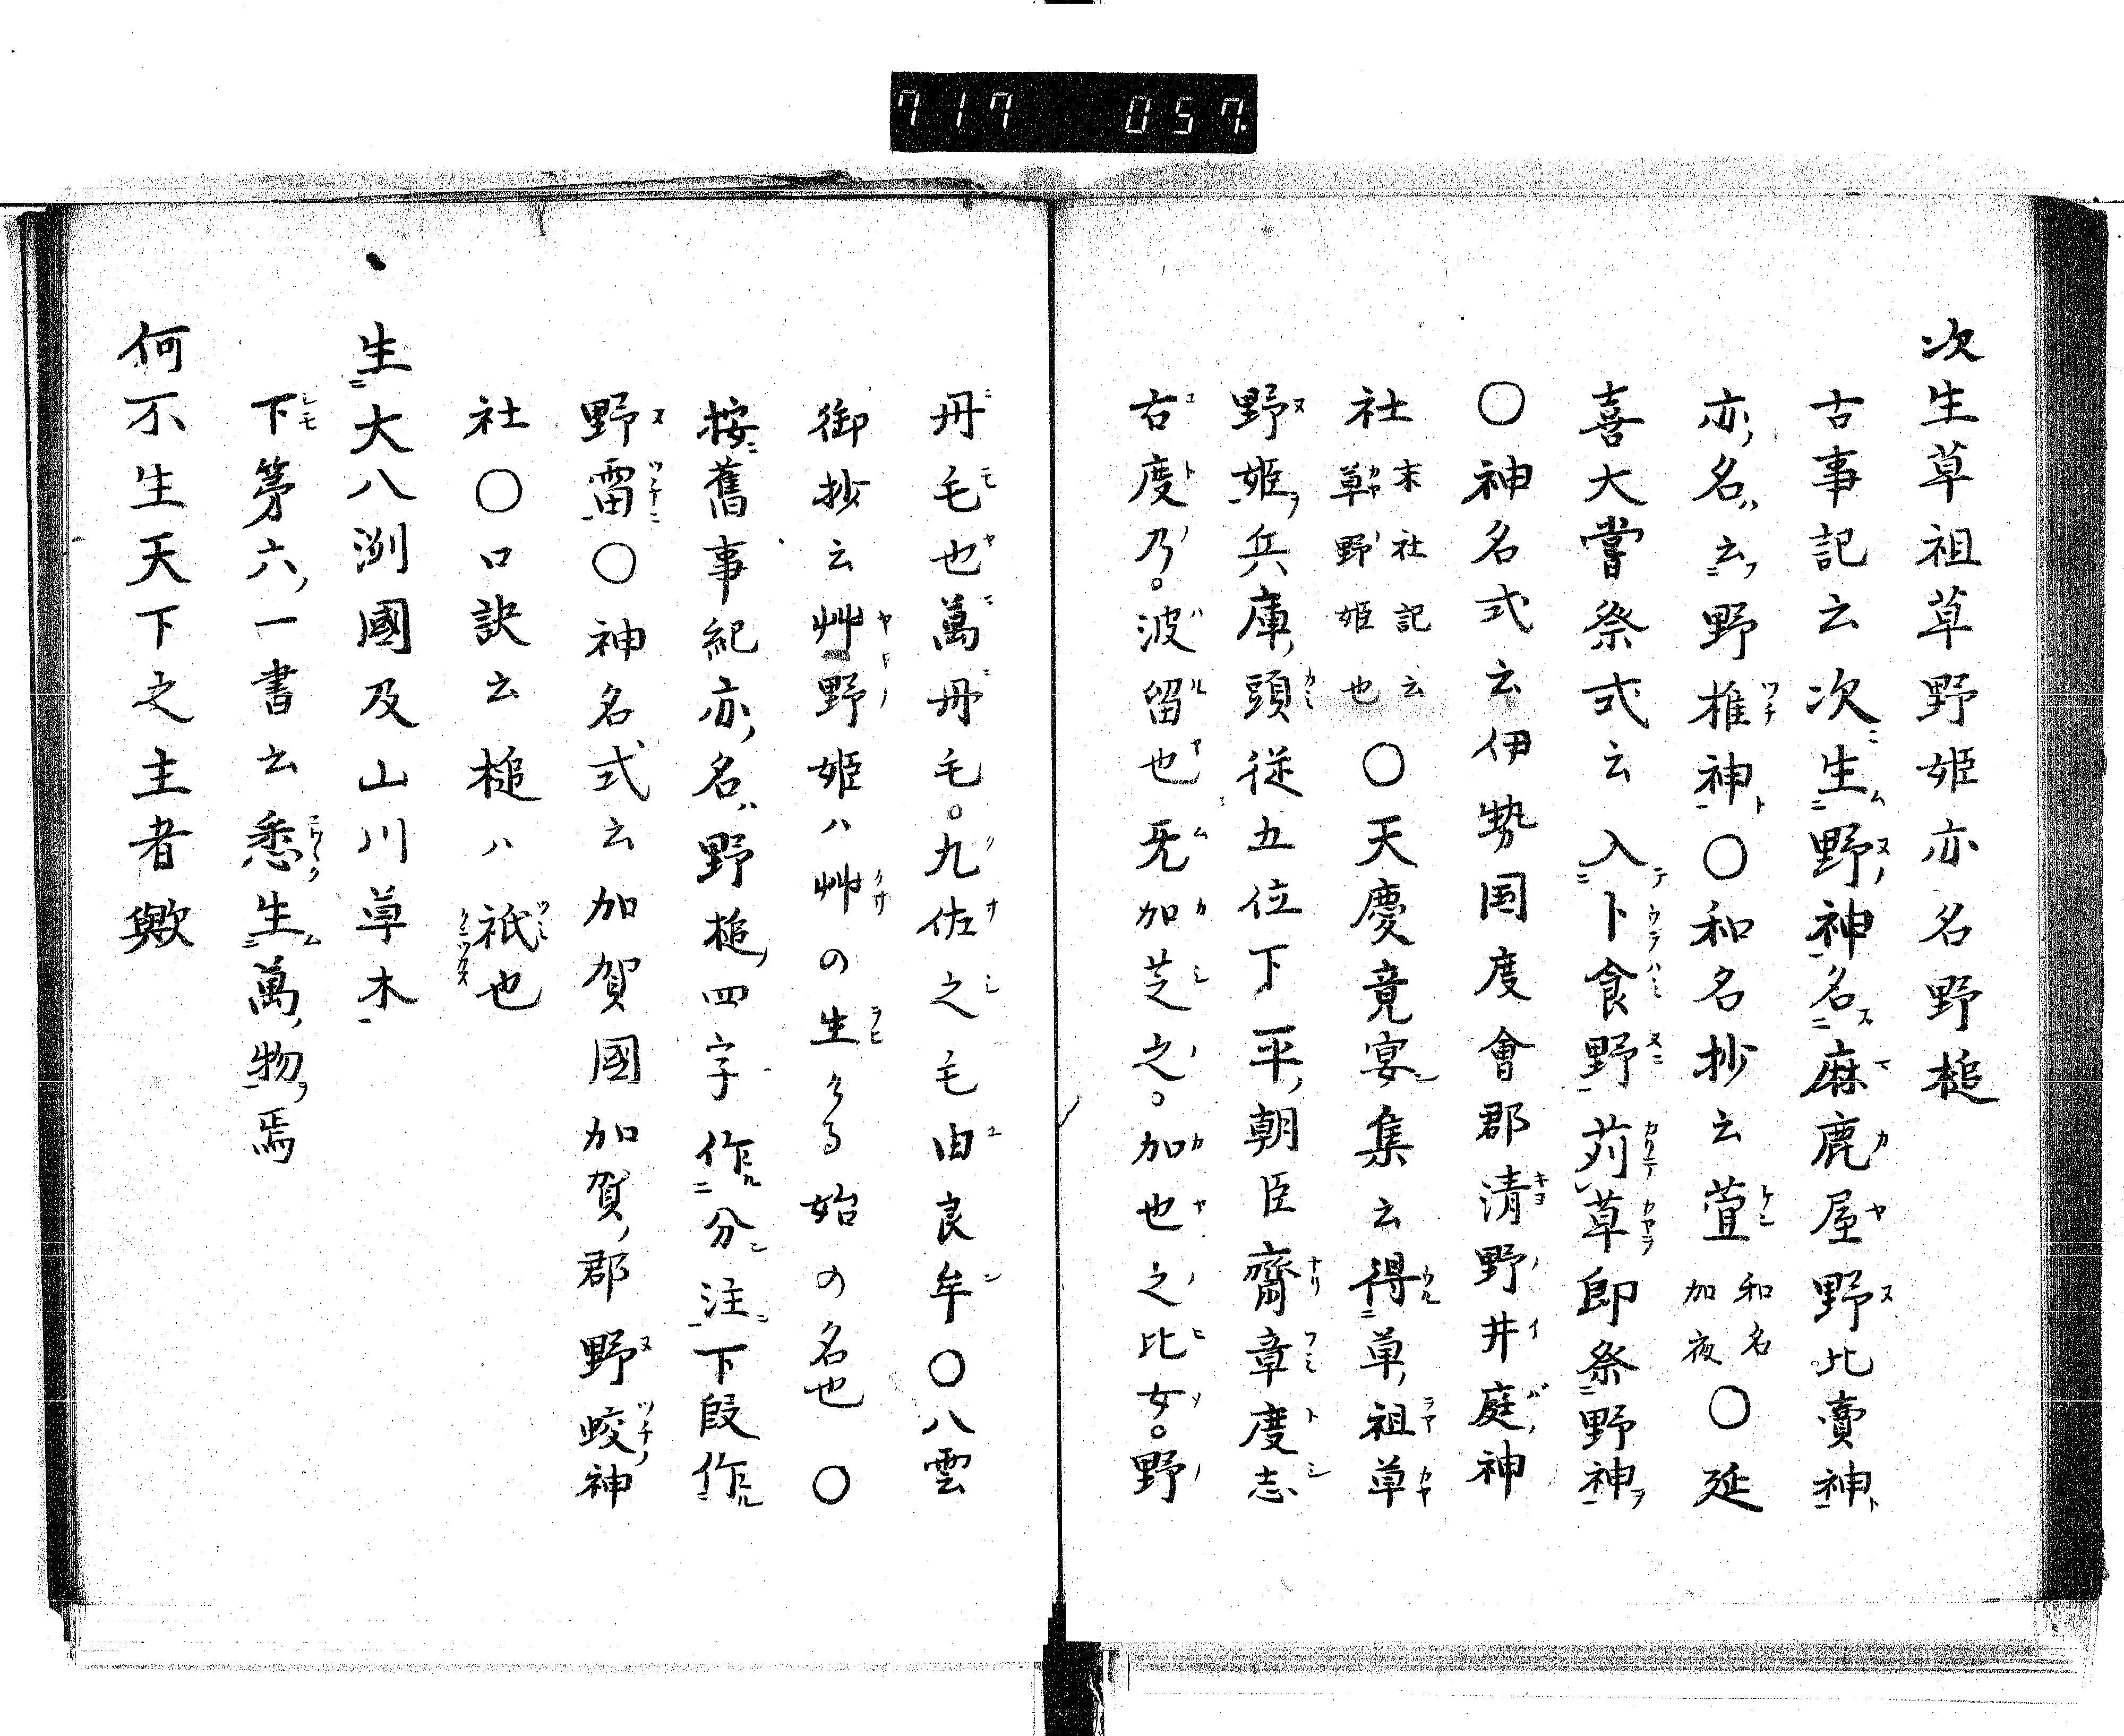 717 057.
次生草祖草野姫亦名野槌
古事記云次生野神名麻鹿屋野比賣神
亦名云野椎神〇和名抄云萱和名加夜〇延
喜大嘗祭式云入卜食野苅草即祭野神
〇神名式云伊勢国度會郡清野井庭神
社末社記云草野姫也〇天慶竟宴集云得草祖草
野姫兵庫頭従五位下平朝臣齋章度志
古度乃。波留也旡加芝之。加也之比女。野
毋毛也萬毋毛。九佐之毛由良牟〇八雲
御抄云艸野姫ハ艸の生る始の名也〇
按舊事紀亦名野槌四字作分注下段作
野雷〇神名式云加賀國加賀郡野蛟神
社〇口訣云槌ハ祇也
生大八洲國及山川草木
下第六一書云悉生萬物焉
何不生天下之主者歟